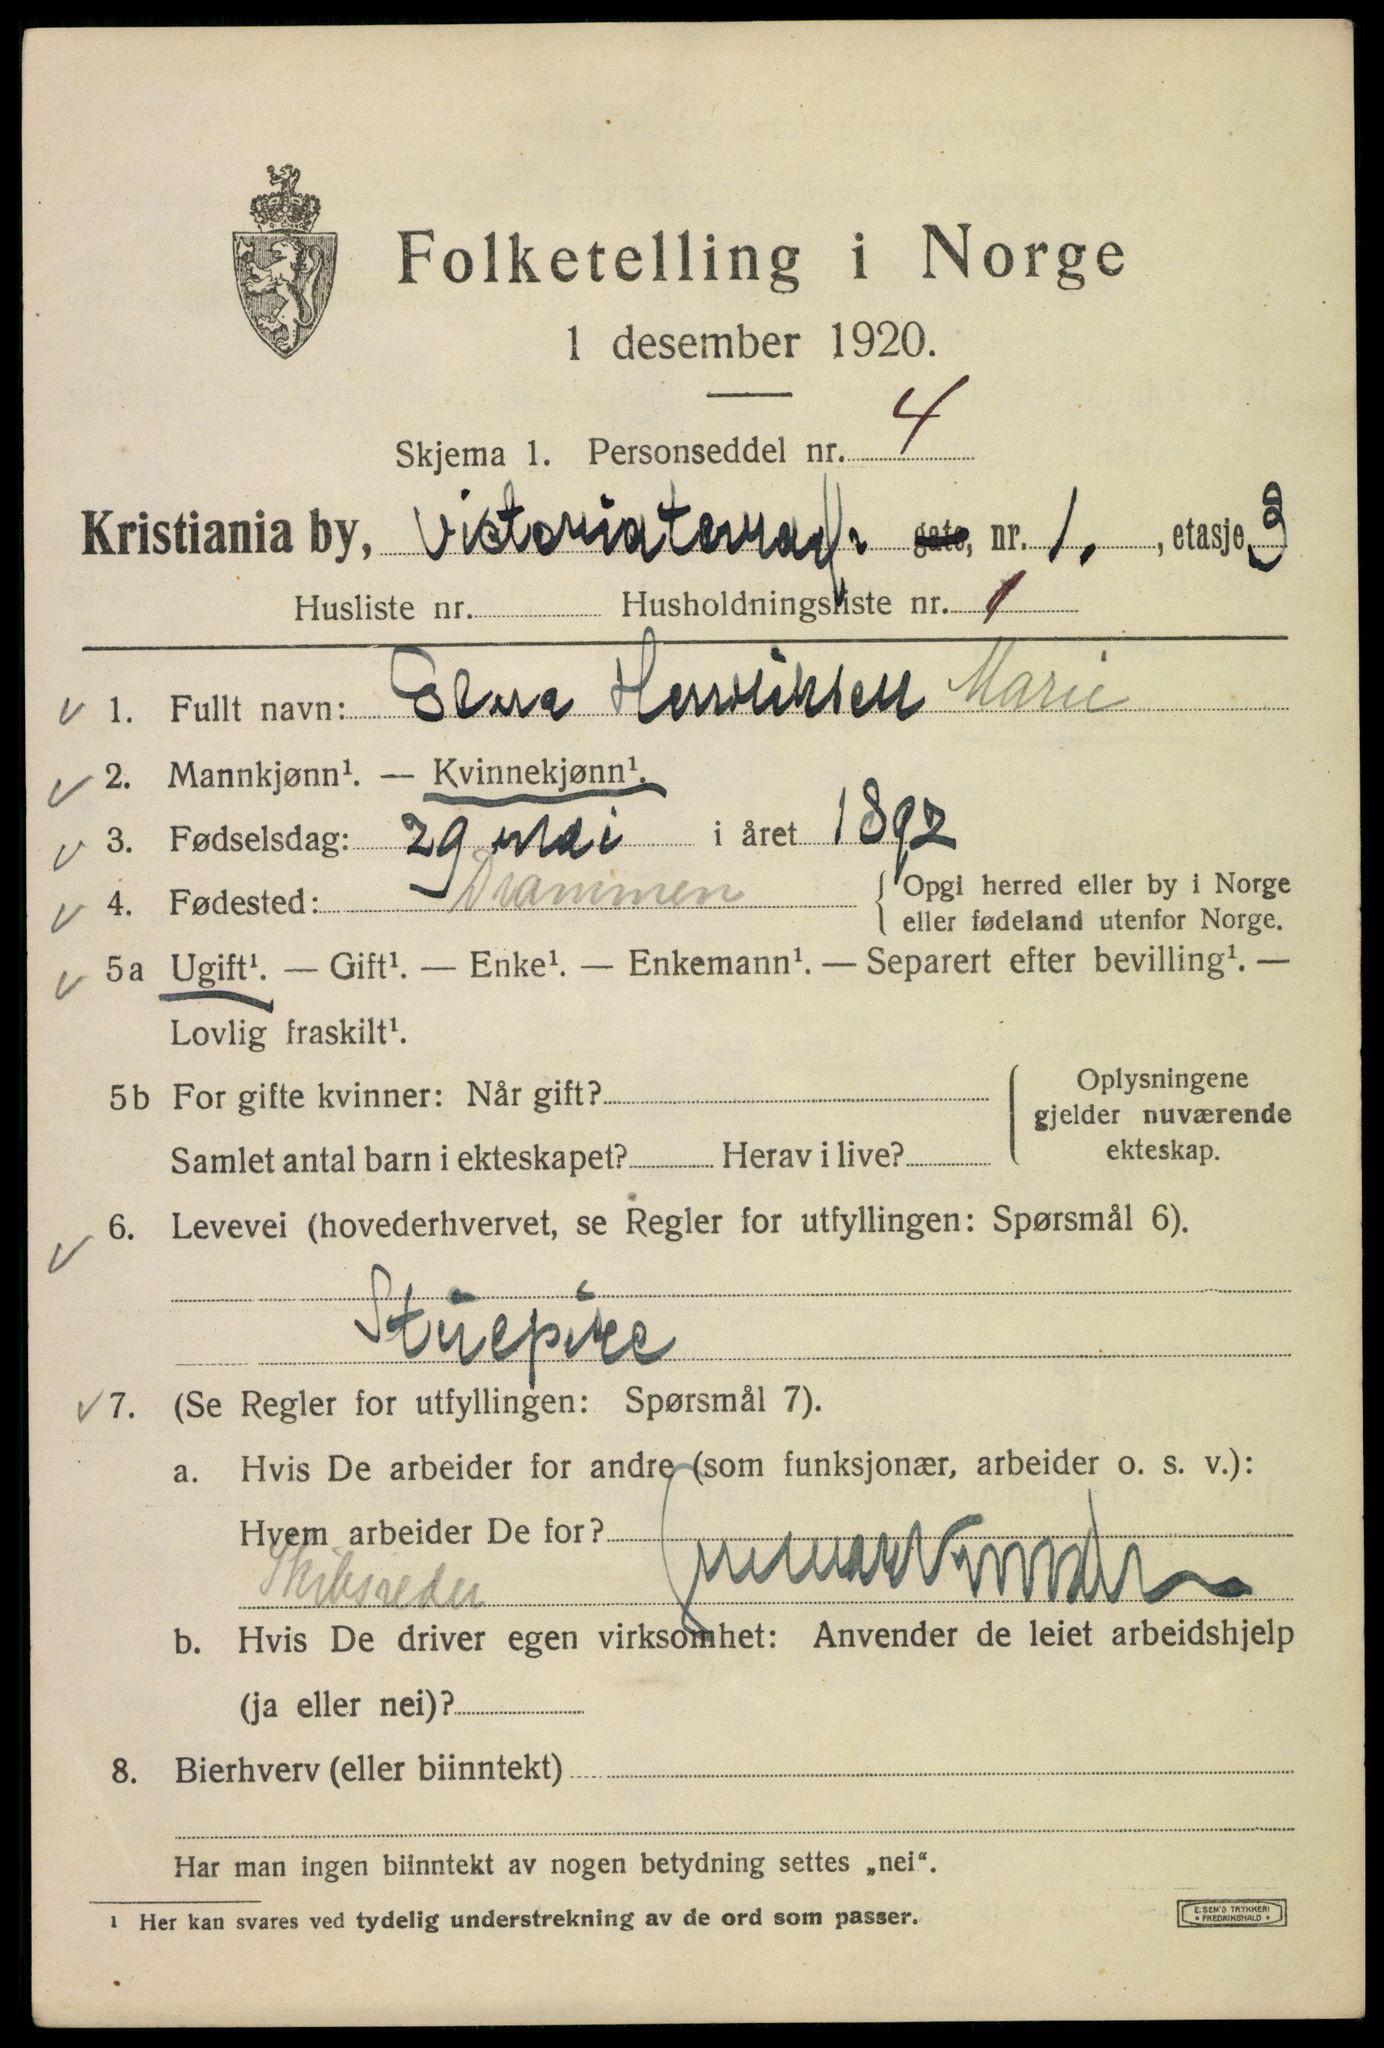 Folketelling i Norge
1 desember 1920.
Skjema 1. Personseddel nr. 4
Kristiania by, Victoriaterrasse gate, nr. 1., etasje 3
Husliste nr. Husholdningsliste nr. 1
1. Fullt navn: Henriksen Marie
2. Mannkjønn¹. — Kvinnekjønn¹.
3. Fødselsdag: 29 mai i året 1892
4. Fødested: Drammen { Opgi herred eller by i Norge
eller fødeland utenfor Norge.
5a Ugift¹. — Gift¹. — Enke¹. — Enkemann¹. — Separert efter bevilling¹. —
Lovlig fraskilt¹.
5b For gifte kvinner: Når gift? { Oplysningene
gjelder nuværende
ekteskap.
Samlet antal barn i ekteskapet? Herav i live?
6. Levevei (hovederhvervet, se Regler for utfyllingen: Spørsmål 6).
Stuepike
7. (Se Regler for utfyllingen: Spørsmål 7).
a. Hvis De arbeider for andre (som funksjonær, arbeider o. s. v.):
Hvem arbeider De for?
Skibsreder
b. Hvis De driver egen virksomhet: Anvender de leiet arbeidshjelp
(ja eller nei)?
8. Bierhverv (eller biinntekt)
Har man ingen biinntekt av nogen betydning settes „nei“.
1 Her kan svares ved tydelig understrekning av de ord som passer.
E. SEM'S TRYKKERI
• FREDRIKSHALD •